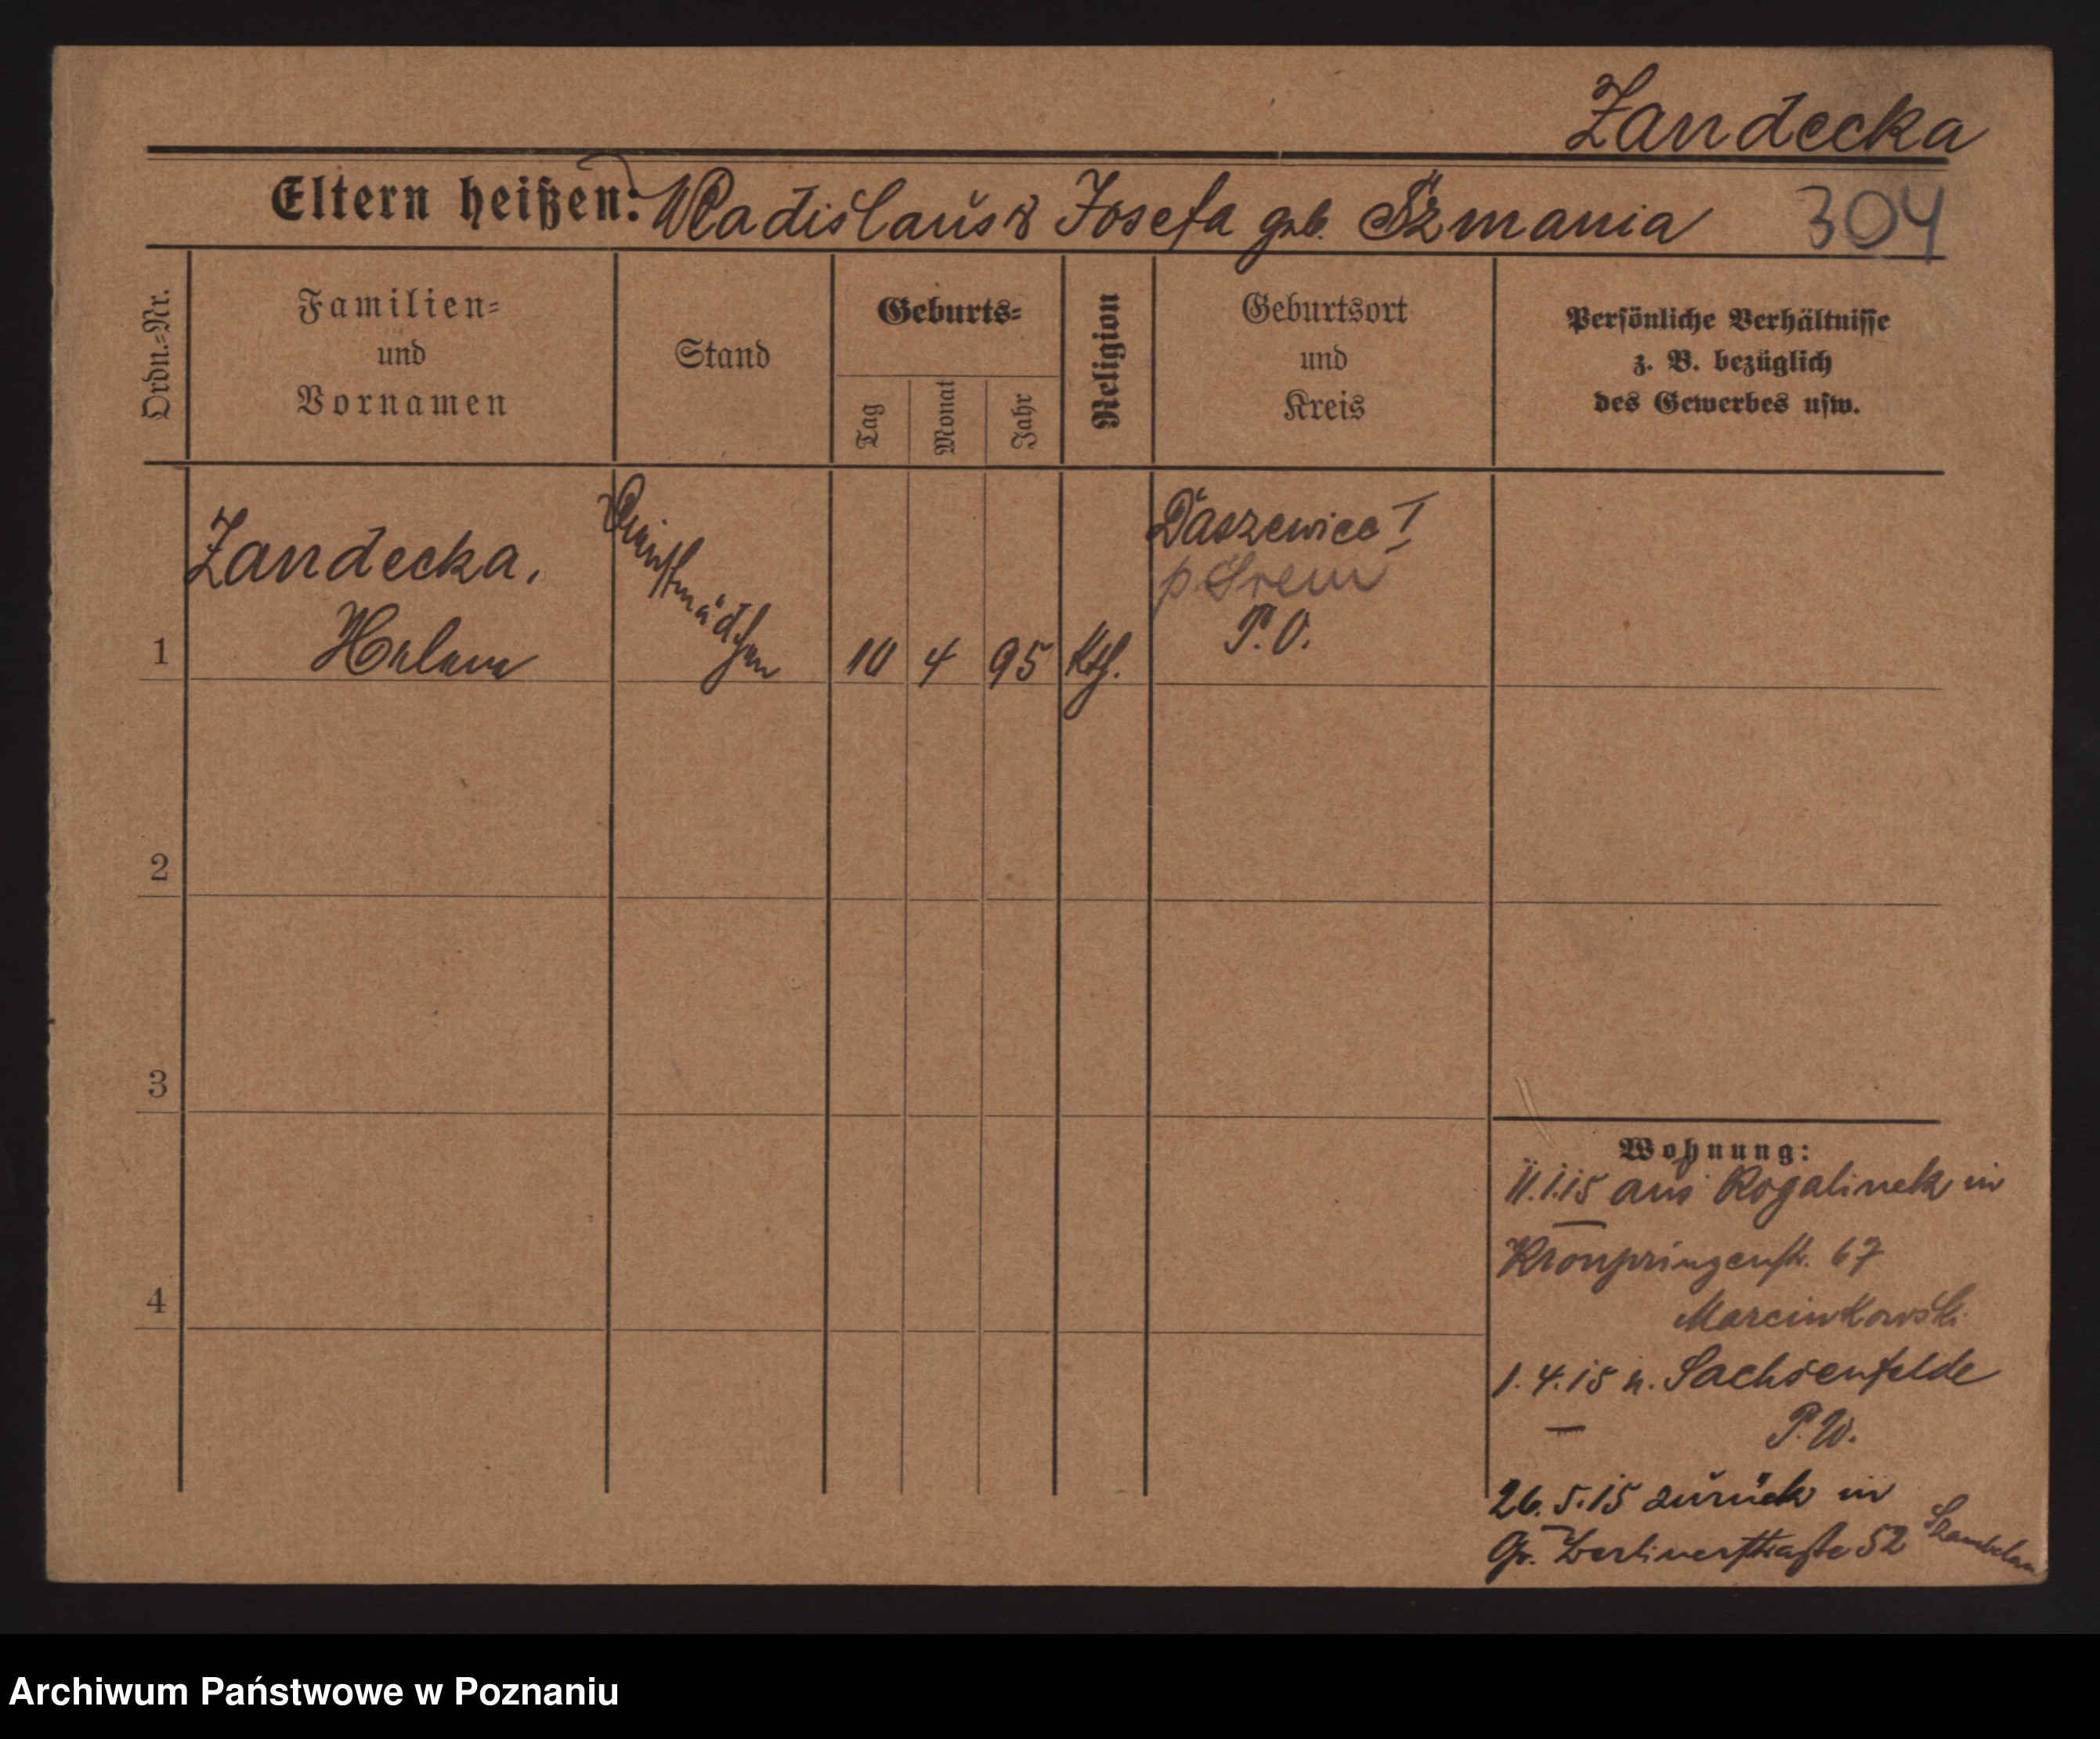 Zandecka
Eltern heißen: Wladislaus & Josefa geb. Szmania 304
Ordn.-Nr.
Familien-
und
Vornamen
Stand
Geburts-
Tag
Monat
Jahr
Religion
Geburtsort
und
Kreis
Persönliche Verhältnisse
z. B. bezüglich
des Gewerbes usw.
Zandecka,
Helene
Dienstmädchen
10 4 95 Kth.
Daszewice I
Srem
P.O.
1
2
3
4
Wohnung:
11.1.15 aus Rogalinek in
Kronprinzenstr. 67
Marcinkowski
1.4.15 n. Sachsenfelde
P.W.
26.5.15 zurück in
Gr. Berlinerstraße 52 Szambelan
Archiwum Państwowe w Poznaniu